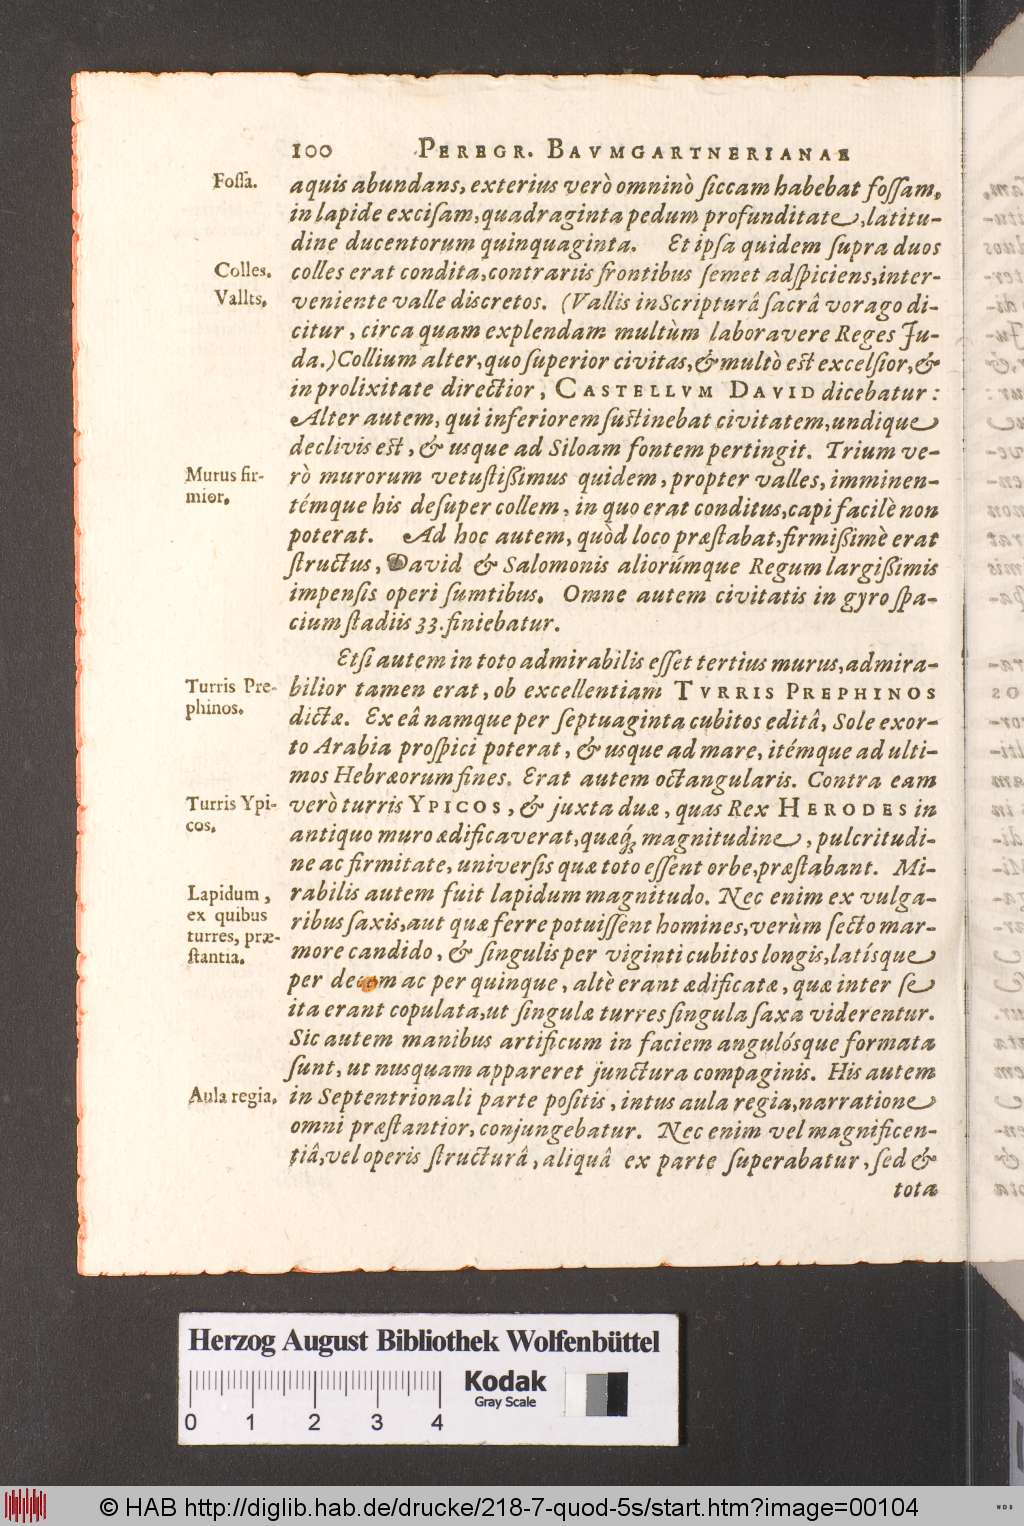 100 PEREGR. BAVMGARTNERIANAE
Fossa.
aquis abundans, exterius verò omninò siccam habebat fossam,
in lapide excisam, quadraginta pedum profunditate, latitu-
dine ducentorum quinquaginta. Et ipsa quidem supra duos
Colles.
colles erat condita, contrariis frontibus semet adspiciens, inter-
Vallts.
veniente valle discretos. (Vallis in Scripturâ sacrâ vorago di-
citur, circa quam explendam multùm laboravere Reges Ju-
da.) Collium alter, quo superior civitas, & multò est excelsior, &
in prolixitate directior, CASTELLVM DAVID dicebatur:
Alter autem, qui inferiorem sustinebat civitatem, undique
declivis est, & usque ad Siloam fontem pertingit. Trium ve-
Murus fir-
mior.
rò murorum vetustißimus quidem, propter valles, imminen-
témque his desuper collem, in quo erat conditus, capi facilè non
poterat. Ad hoc autem, quòd loco præstabat, firmißimè erat
structus, David & Salomonis aliorúmque Regum largißimis
impensis operi sumtibus. Omne autem civitatis in gyro spa-
cium stadiis 33. finiebatur.
Etsi autem in toto admirabilis esset tertius murus, admira-
Turris Pre-
phinos.
bilior tamen erat, ob excellentiam TVRRIS PREPHINOS
dictæ. Ex eâ namque per septuaginta cubitos editâ, Sole exor-
to Arabia prospici poterat, & usque ad mare, itémque ad ulti-
mos Hebræorum fines. Erat autem octangularis. Contra eam
Turris Ypi-
cos.
verò turris YPICOS, & juxta duæ, quas Rex HERODES in
antiquo muro ædificaverat, quæq́; magnitudine, pulcritudi-
ne ac firmitate, universis quæ toto essent orbe, præstabant. Mi-
Lapidum,
ex quibus
turres, præ-
stantia.
rabilis autem fuit lapidum magnitudo. Nec enim ex vulga-
ribus saxis, aut quæ ferre potuissent homines, verùm secto mar-
more candido, & singulis per viginti cubitos longis, latísque
per decem ac per quinque, altè erant ædificatæ, quæ inter se
ita erant copulata, ut singulæ turres singula saxa viderentur.
Sic autem manibus artificum in faciem angulósque formata
sunt, ut nusquam appareret junctura compaginis. His autem
Aula regia.
in Septentrionali parte positis, intus aula regia, narratione
omni præstantior, conjungebatur. Nec enim vel magnificen-
tiâ, vel operis structurâ, aliquâ ex parte superabatur, sed &
tota
Herzog August Bibliothek Wolfenbüttel
Kodak
Gray Scale
0 1 2 3 4
© HAB http://diglib.hab.de/drucke/218-7-quod-5s/start.htm?image=00104